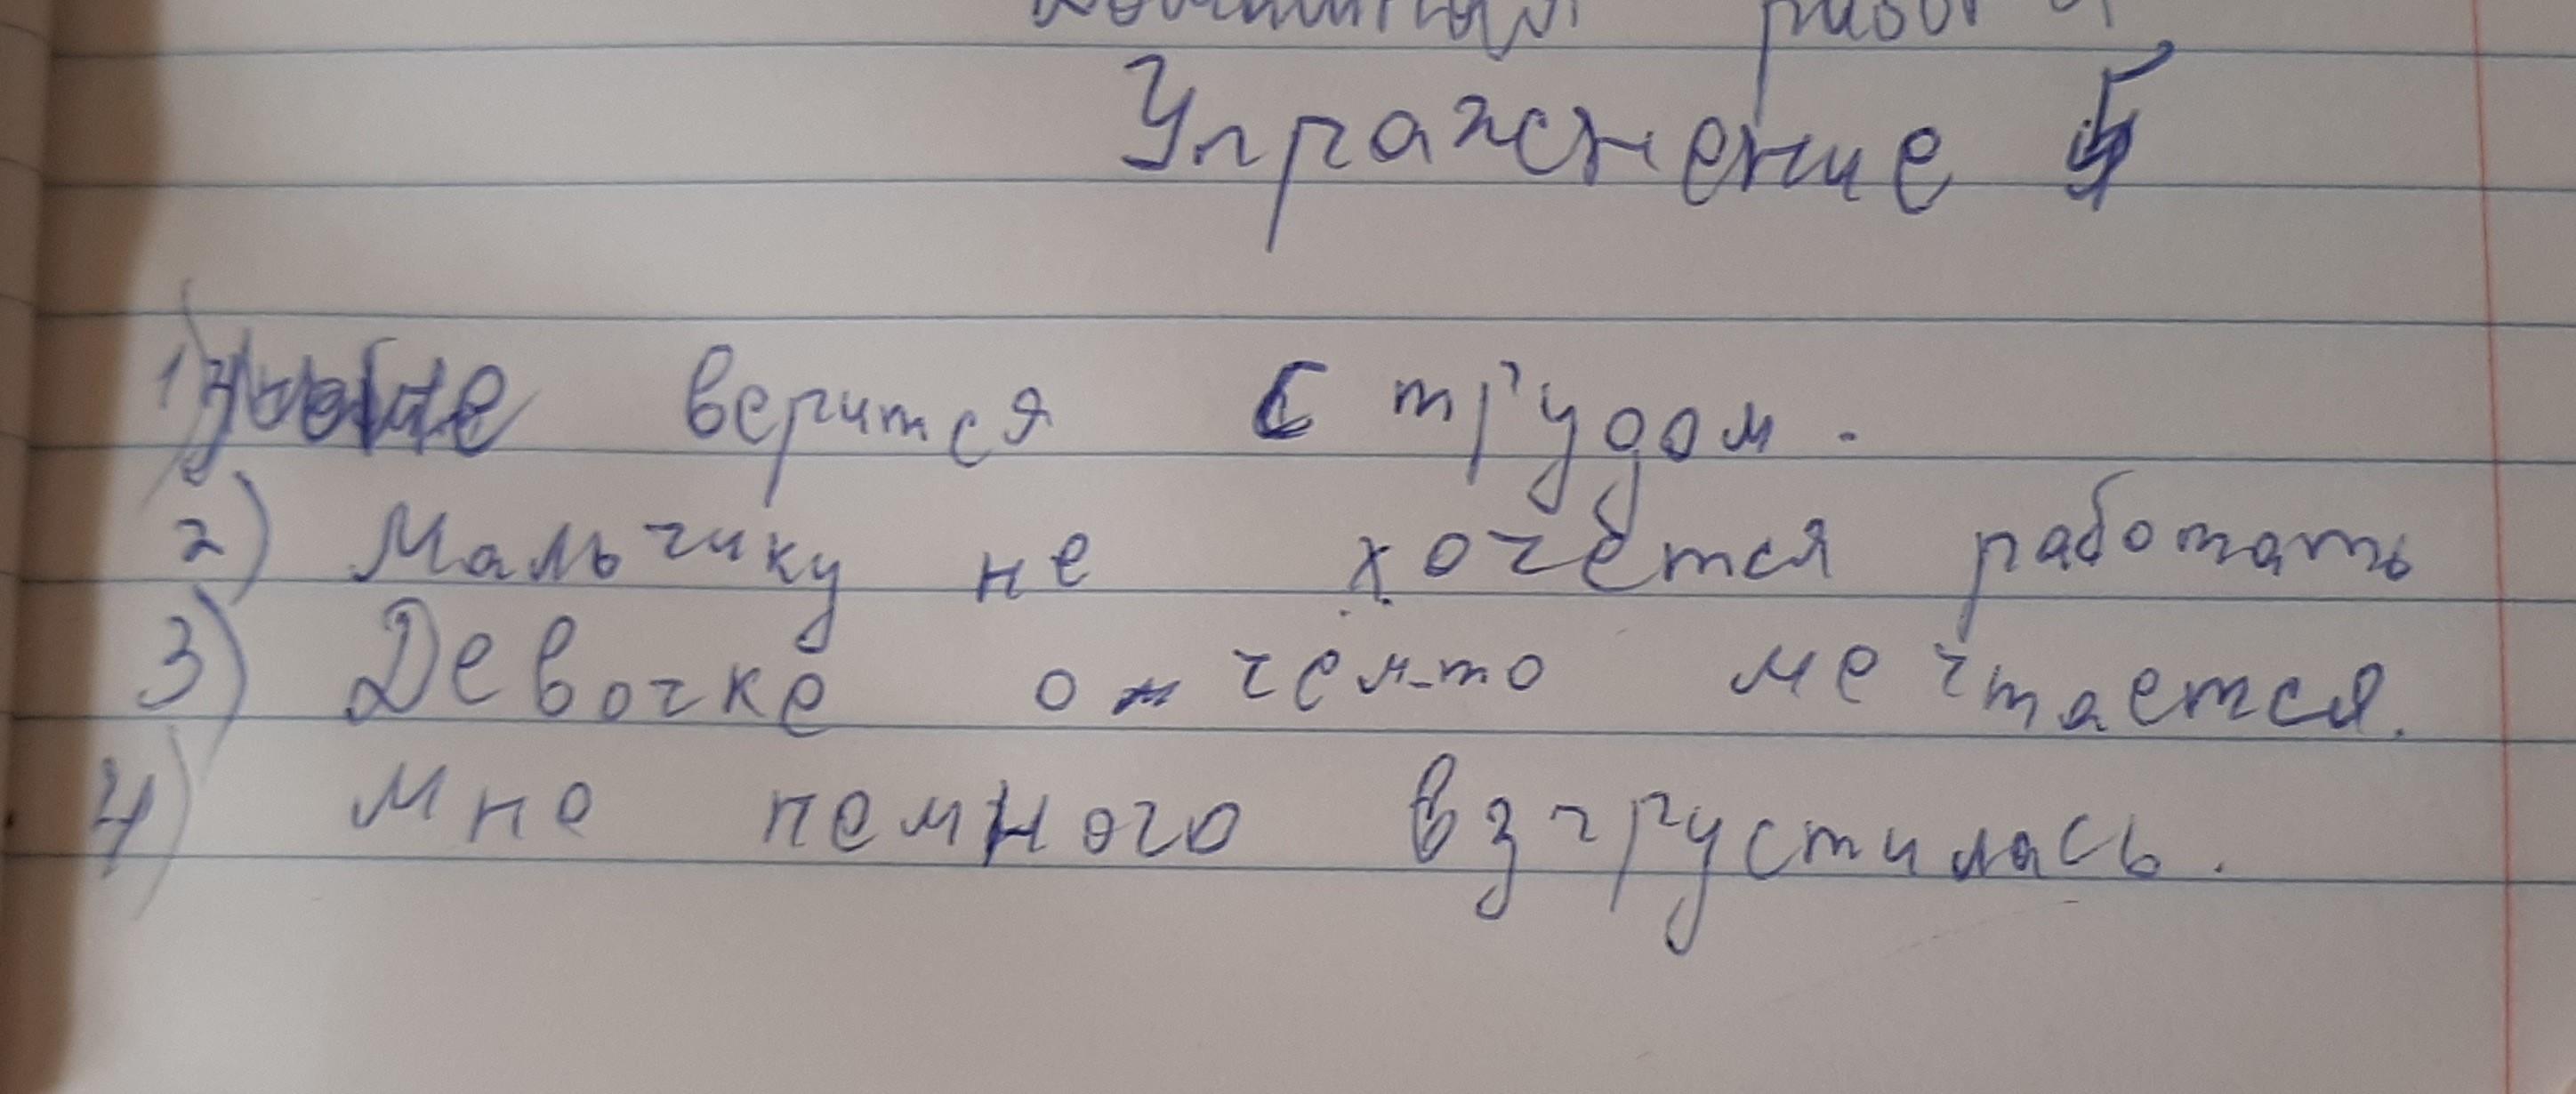 Домашняя работа
Упражнение 5
1) верится с трудом.
2) Мальчику не хочется работать
3) Девочке о чем-то мечтается.
4) Мне немного взгрустилась.